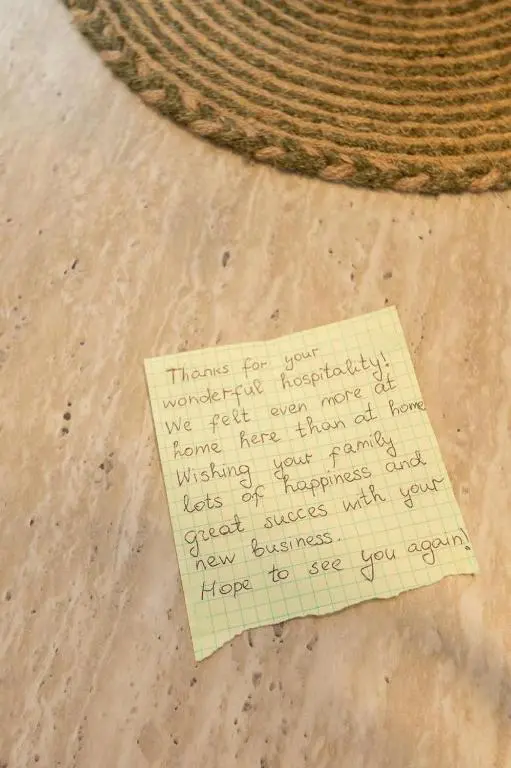 Thanks for your
wonderful hospitality!
We felt even more at
home here than at home
Wishing your family
lots of happiness and
great succes with your
new business.
Hope to see you again!